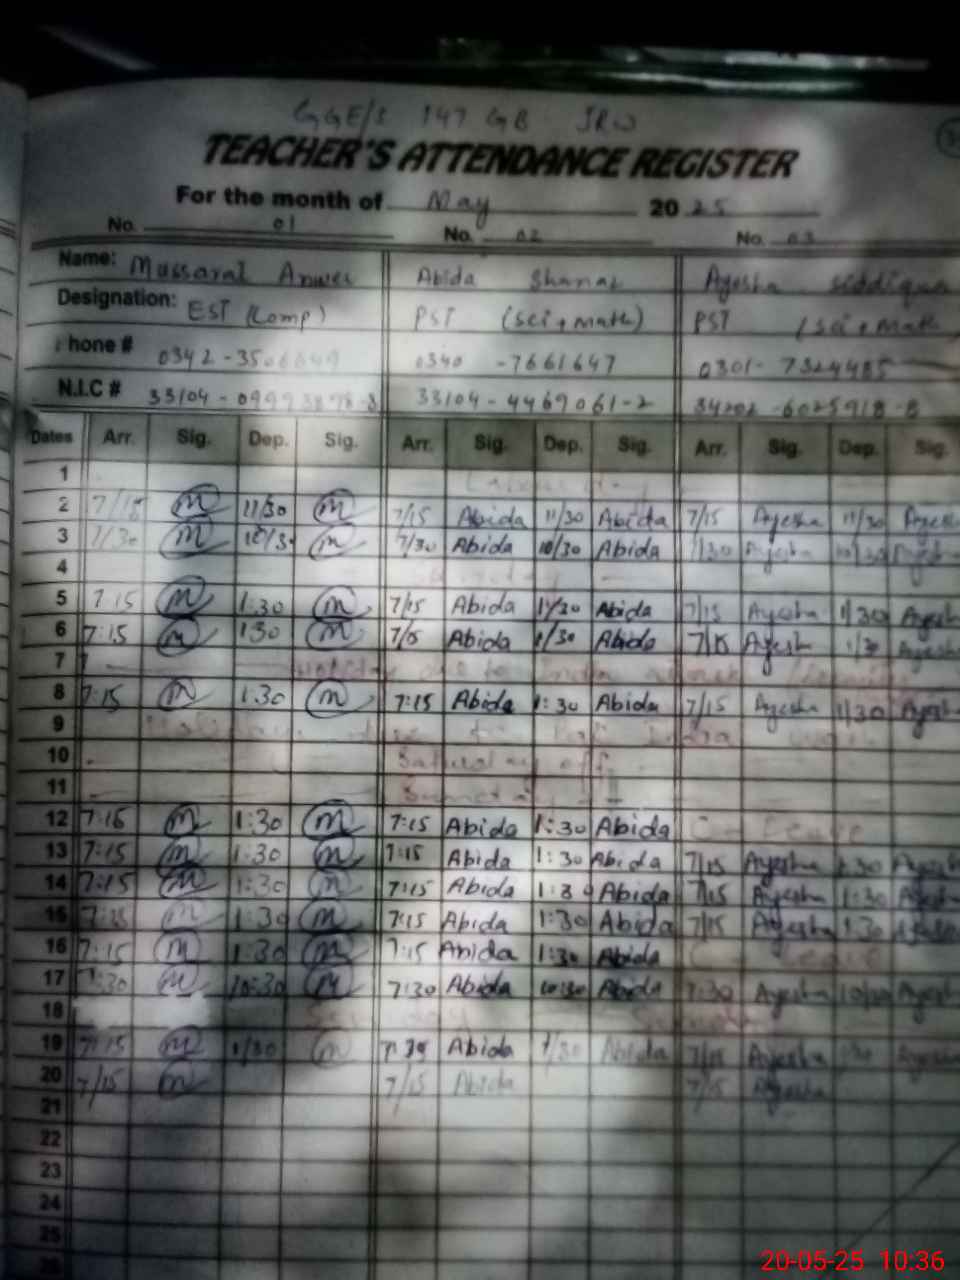 GGE/S 147 GB JRW
TEACHER'S ATTENDANCE REGISTER
For the month of May 2025
No. 01 No. 02 No. 03
Name: Mussarat Anwer Abida Shanaz Ayesha Siddiqua
Designation: EST (Comp) PST (Sci + Math) PST (Sci + Math
hone # 0342-3506 0340-7661647 0301-7324485
N.I.C # 33104- 33104-4469061-2 34202-6025918-8
Dates Arr. Sig. Dep. Sig. Arr. Sig. Dep. Sig. Arr. Sig. Dep. Sig.
1
2 7/15 m 11/30 m 7/15 Abida 11/30 Abida 7/15 Ayesha 11/30 Ayesh
3 7/30 m 10/30 m 7/30 Abida 10/30 Abida 7/30 Ayesha 10/30 Ayesh
4 Sunday
5 7:15 m 1:30 m 7/15 Abida 1/30 Abida 7/15 Ayesha 1/30 Ayesh
6 7:15 m 1:30 m 7/15 Abida 1/30 Abida 7/15 Ayesh 1/30 Ayesha
7 Holiday due to India attack
8 7:15 m 1:30 m 7:15 Abida 1:30 Abida 7/15 Ayesha 1/30 Ayesha
9 Holiday due to India
10 Saturday off
11 Sunday
12 7:15 m 1:30 m 7:15 Abida 1:30 Abida Leave
13 7:15 m 1:30 m 7:15 Abida 1:30 Abida 7/15 Ayesha 1:30 Ayesha
14 7:15 m 1:30 m 7:15 Abida 1:30 Abida 7/15 Ayesha 1:30 Ayesha
15 7:15 m 1:30 m 7:15 Abida 1:30 Abida 7/15 Ayesha 1:30 Ayesha
16 7:15 m 1:30 m 7:15 Abida 1:30 Abida Leave
17 7:30 m 10:30 m 7:30 Abida 10:30 Abida 7:30 Ayesha 10/30 Ayesh
18 Sunday Sunday
19 7:15 m 1/30 m Abida 1/30 Abida 7/15 Ayesha Ayesha
20 7/15 m 7/15 Abida 7/15 Ayesha
21
22
23
24
25
26
20-05-25 10:36